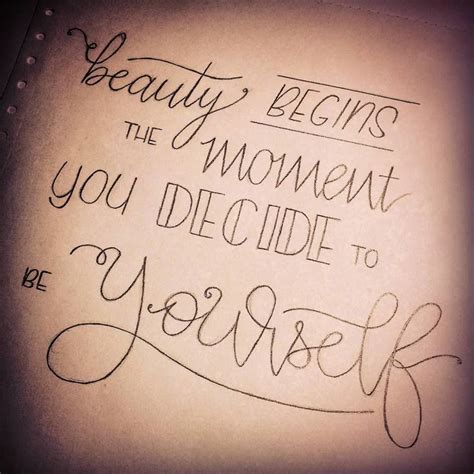 beauty BEGINS
THE moment
YOU DECIDE TO
BE yourself